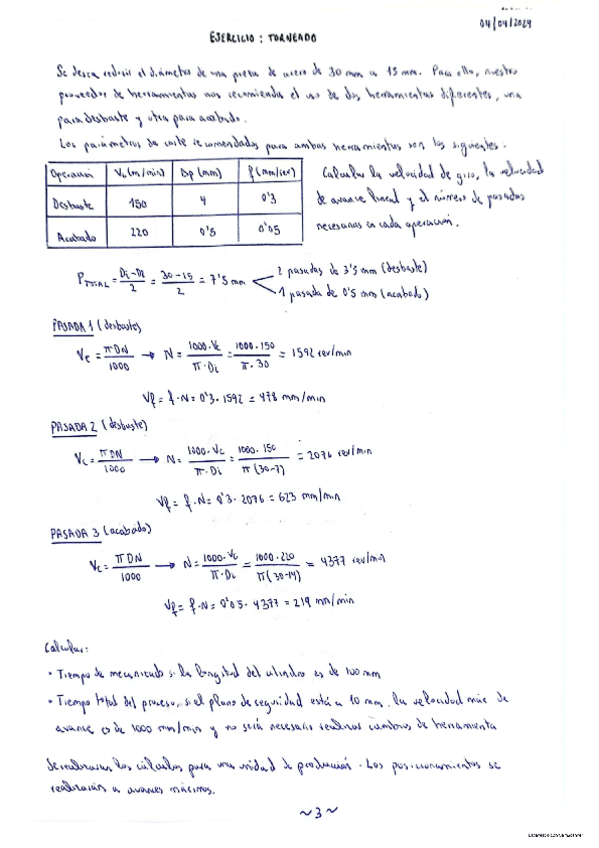 04/04/2024
EJERCICIO: TORNEADO
Se desea reducir el diámetro de una pieza de acero de 30 mm a 15 mm. Para ello, nuestro
proveedor de herramientas nos recomienda el uso de dos herramientas diferentes, una
para desbaste y otra para acabado.
Los parámetros de corte recomendados para ambas herramientas son los siguientes.
Operación Vc (m/min) Dp (mm) f (mm/rev)
Desbaste 150 4 0'3
Acabado 220 0'5 0'05
Calcular la velocidad de giro, la velocidad
de avance lineal y el número de pasadas
necesarias en cada operación.
P TOTAL = Di-Df / 2 = 30-15 / 2 = 7'5 mm
2 pasadas de 3'5 mm (desbaste)
1 pasada de 0'5 mm (acabado)
PASADA 1 (desbaste)
Vc = πDN / 1000 → N = 1000·Vc / π·Di = 1000·150 / π·30 = 1592 rev/min
Vf = f·N = 0'3·1592 = 478 mm/min
PASADA 2 (desbaste)
Vc = πDN / 1000 → N = 1000·Vc / π·Di = 1000·150 / π(30-7) = 2076 rev/min
Vf = f·N = 0'3·2076 = 623 mm/min
PASADA 3 (acabado)
Vc = πDN / 1000 → N = 1000·Vc / π·Di = 1000·220 / π(30-14) = 4377 rev/min
Vf = f·N = 0'05·4377 = 219 mm/min
Calcular:
• Tiempo de mecanizado si la longitud del cilindro es de 100 mm
• Tiempo total del proceso, si el plano de seguridad está a 10 mm, la velocidad máx de
avance es de 1000 mm/min y no será necesario realizar cambios de herramienta
Se realizarán los cálculos para una unidad de producción. Los posicionamientos se
realizarán a avances máximos.
~3~